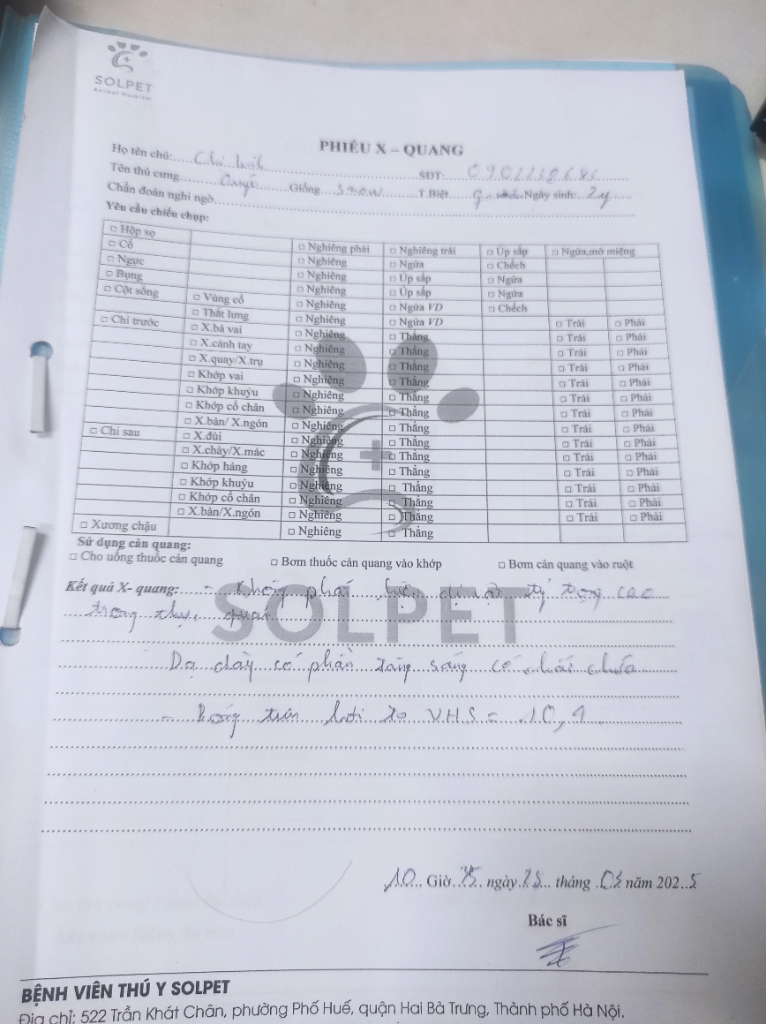 SOLPET
Animal Hospital
PHIẾU X – QUANG
Họ tên chủ: Chị
SĐT:
Tên thú cưng Giống T.Biệt Ngày sinh: 2y
Chẩn đoán nghi ngờ
Yêu cầu chiếu chụp:
□ Hộp sọ □ Nghiêng phải □ Nghiêng trái □ Úp sấp □ Ngửa, mở miệng
□ Cổ □ Nghiêng □ Ngửa □ Chếch
□ Ngực □ Nghiêng □ Úp sấp □ Ngửa
□ Bụng □ Nghiêng □ Úp sấp □ Ngửa
□ Cột sống □ Vùng cổ □ Nghiêng □ Ngửa VD □ Chếch
□ Thắt lưng □ Nghiêng □ Ngửa VD
□ Chi trước □ X.bả vai □ Nghiêng □ Thẳng □ Trái □ Phải
□ X.cánh tay □ Nghiêng □ Thẳng □ Trái □ Phải
□ X.quay/X.trụ □ Nghiêng □ Thẳng □ Trái □ Phải
□ Khớp vai □ Nghiêng □ Thẳng □ Trái □ Phải
□ Khớp khuỷu □ Nghiêng □ Thẳng □ Trái □ Phải
□ Khớp cổ chân □ Nghiêng □ Thẳng □ Trái □ Phải
□ X.bàn/ X.ngón □ Nghiêng □ Thẳng □ Trái □ Phải
□ Chi sau □ X.đùi □ Nghiêng □ Thẳng □ Trái □ Phải
□ X.chày/X.mác □ Nghiêng □ Thẳng □ Trái □ Phải
□ Khớp háng □ Nghiêng □ Thẳng □ Trái □ Phải
□ Khớp khuỷu □ Nghiêng □ Thẳng □ Trái □ Phải
□ Khớp cổ chân □ Nghiêng □ Thẳng □ Trái □ Phải
□ X.bàn/X.ngón □ Nghiêng □ Thẳng □ Trái □ Phải
□ Xương chậu □ Nghiêng □ Thẳng
Sử dụng cản quang:
□ Cho uống thuốc cản quang □ Bơm thuốc cản quang vào khớp □ Bơm cản quang vào ruột
Kết quả X- quang: - Không phát hiện dị vật tỷ trọng cao
trong thực quản
SOLPET
Dạ dày có phần tăng sáng có chất chứa
- Bóng tim hơi to VHS = 10,1
10 Giờ 35 ngày 28 tháng 03 năm 2025
Bác sĩ
BỆNH VIỆN THÚ Y SOLPET
Địa chỉ: 522 Trần Khát Chân, phường Phố Huế, quận Hai Bà Trưng, Thành phố Hà Nội.